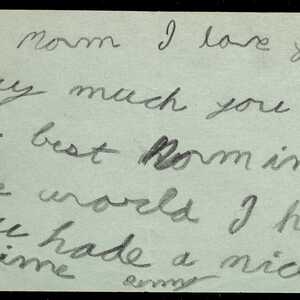 Norm I love y
ry much you
best Norm in
e world I h
u hade a nic
ime